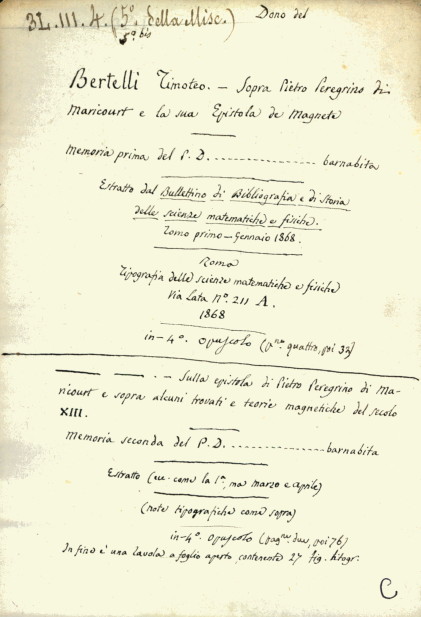 3L.III.4.(5º. della Misc.)
Dono del
5º bis
Bertelli Timoteo. — Sopra Pietro Peregrino di
Maricourt e la sua Epistola de Magnete
Memoria prima del P. D. .................. barnabita
Estratto dal Bullettino di Bibliografia e di Storia
delle scienze matematiche e fisiche.
Tomo primo — Gennaio 1868.
Roma
Tipografia delle scienze matematiche e fisiche
Via Lata Nº. 211 A.
1868
in-4º. opuscolo (pne quattro, poi 32)
— — . — Sulla epistola di Pietro Peregrino di Ma-
ricourt e sopra alcuni trovati e teorie magnetiche del secolo
XIII.
Memoria seconda del P. D. .................. barnabita
Estratto (ec. come la 1ª, ma marzo e aprile)
(note tipografiche come sopra)
in-4º. opuscolo (pagne due, poi 76)
In fine è una tavola a foglio aperto contenente 27 fig. litogr.
C